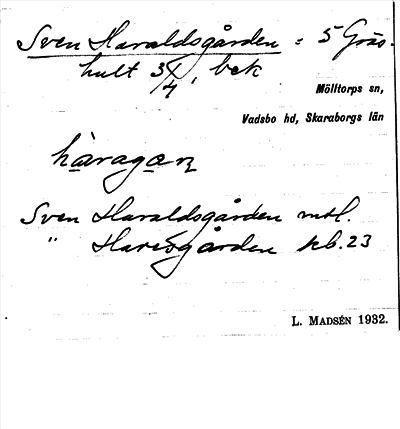 Sven Haraldsgården = 5 Gräs-
hult 3/4, bek
Mölltorps sn,
Vadsbo hd, Skaraborgs län
hàragaɳ
Sven Haraldsgården mtl.
" Haresgården kb. 23
L. MADSÉN 1932.